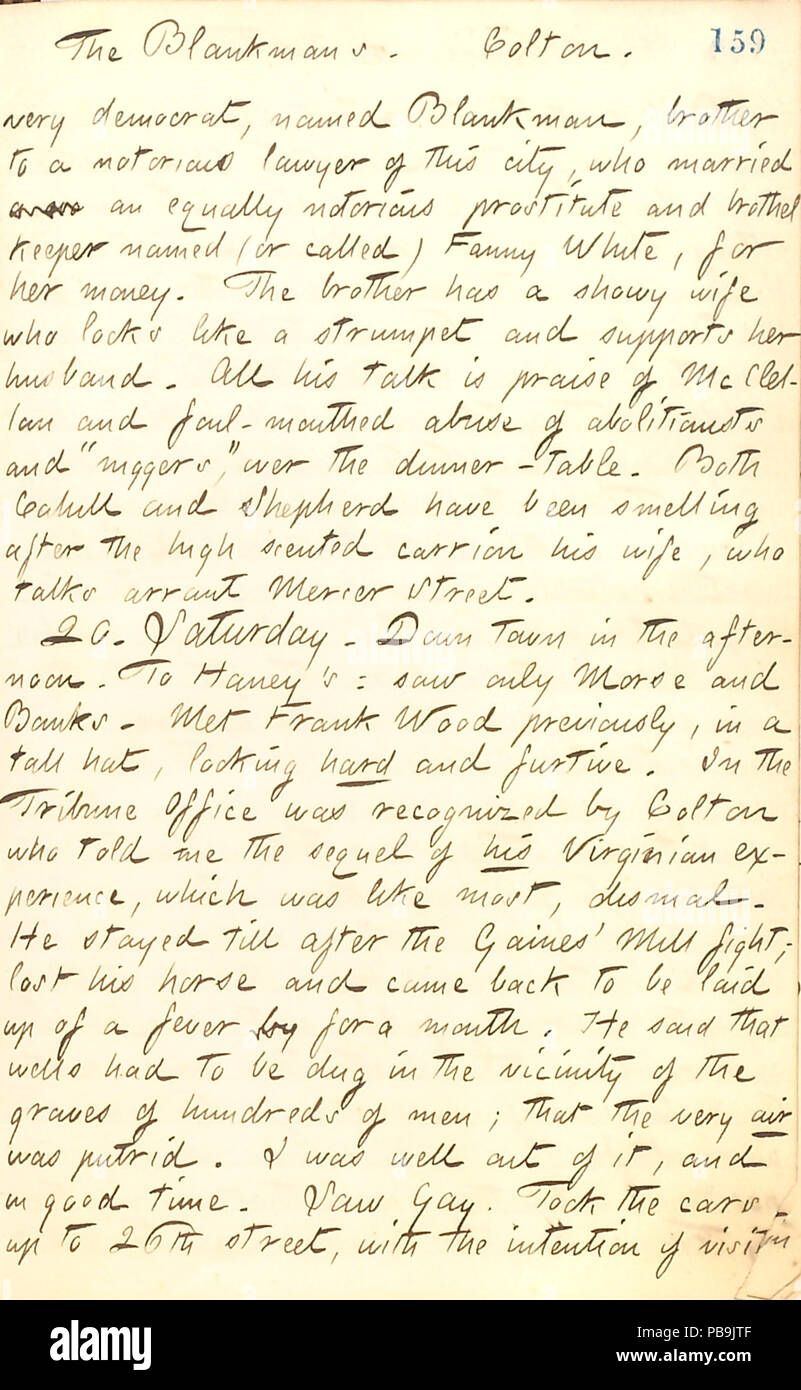 The Blankmans. Colton. 159
very democrat, named Blankman, brother
to a notorious lawyer of this city, who married
an equally notorious prostitute and brothel
keeper named (or called) Fanny White, for
her money. The brother has a showy wife
who looks like a strumpet and supports her
husband. All his talk is praise of McClel-
lan and foul-mouthed abuse of abolitionists
and "niggers", over the dinner-table. Both
Cahill and Shepherd have been smelling
after the high scented carrion his wife, who
talks arrant Mercer Street.
20. Saturday. Down town in the after-
noon. To Haney's: saw only Morse and
Banks. Met Frank Wood previously, in a
tall hat, looking hard and furtive. In the
Tribune Office was recognized by Colton
who told me the sequel of his Virginian ex-
perience, which was like most, dismal.
He stayed till after the Gaines' Mill fight;
lost his horse and came back to be laid
up of a fever for a month. He said that
wells had to be dug in the vicinity of the
graves of hundreds of men; that the very air
was putrid. I was well out of it, and
in good time. Saw Gay. Took the cars
up to 26th street, with the intention of visitin
alamy
Image ID: PB9JTF
www.alamy.com